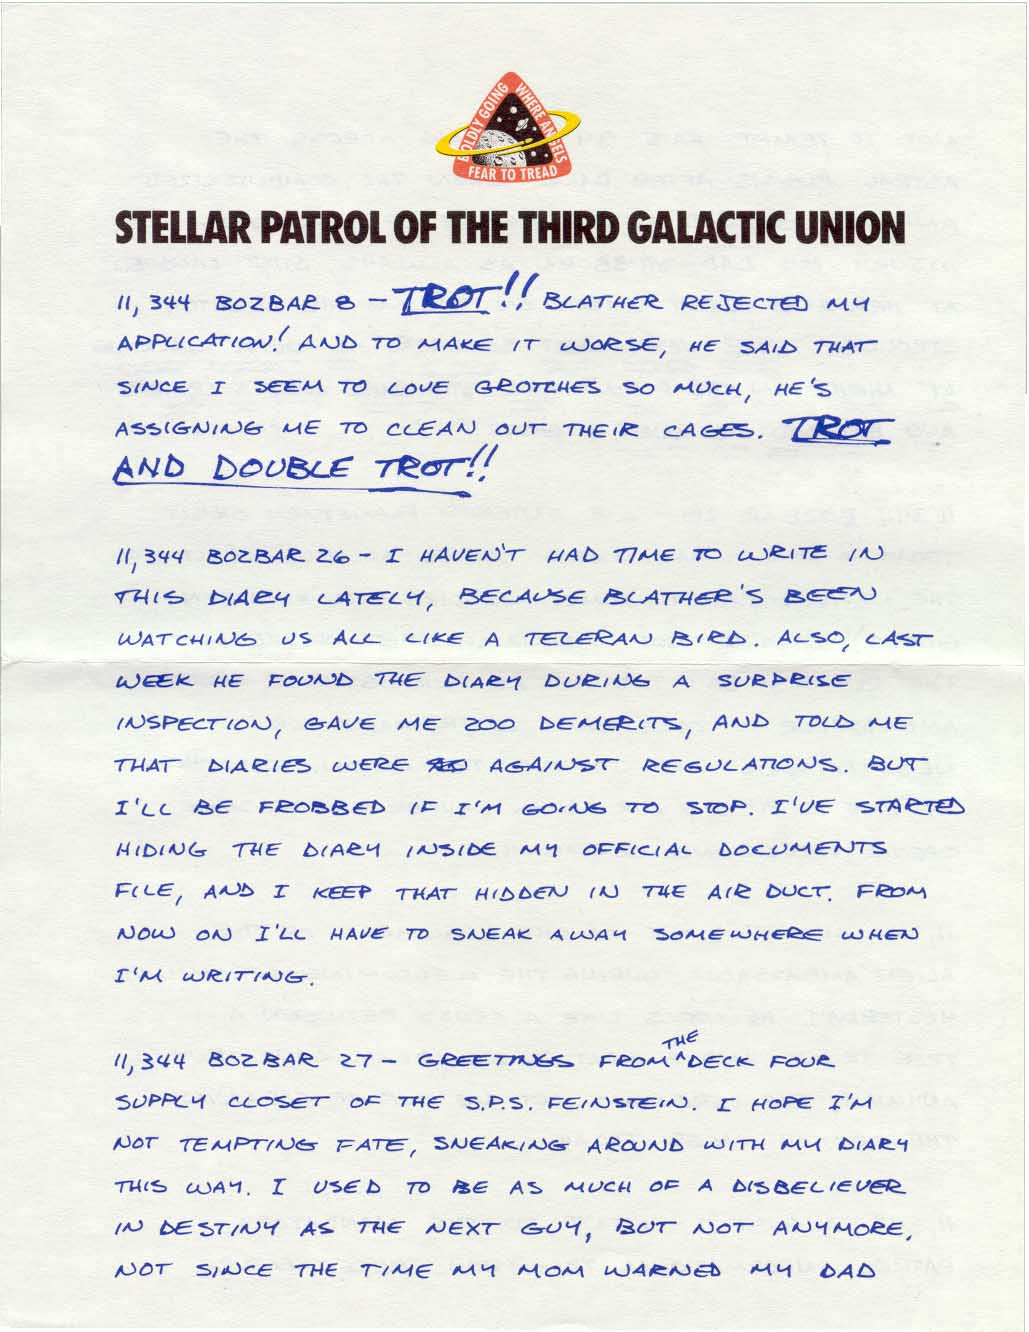 BOLDLY GOING WHERE ANGELS
FEAR TO TREAD
STELLAR PATROL OF THE THIRD GALACTIC UNION
11,344 BOZBAR 8 – TROT!! BLATHER REJECTED MY
APPLICATION! AND TO MAKE IT WORSE, HE SAID THAT
SINCE I SEEM TO LOVE GROTCHES SO MUCH, HE'S
ASSIGNING ME TO CLEAN OUT THEIR CAGES. TROT
AND DOUBLE TROT!!
11,344 BOZBAR 26 – I HAVEN'T HAD TIME TO WRITE IN
THIS DIARY LATELY, BECAUSE BLATHER'S BEEN
WATCHING US ALL LIKE A TELERAN BIRD. ALSO, LAST
WEEK HE FOUND THE DIARY DURING A SURPRISE
INSPECTION, GAVE ME 200 DEMERITS, AND TOLD ME
THAT DIARIES WERE AGAINST REGULATIONS. BUT
I'LL BE FROBBED IF I'M GOING TO STOP. I'VE STARTED
HIDING THE DIARY INSIDE MY OFFICIAL DOCUMENTS
FILE, AND I KEEP THAT HIDDEN IN THE AIR DUCT. FROM
NOW ON I'LL HAVE TO SNEAK AWAY SOMEWHERE WHEN
I'M WRITING.
11,344 BOZBAR 27 – GREETINGS FROM THE DECK FOUR
SUPPLY CLOSET OF THE S.P.S. FEINSTEIN. I HOPE I'M
NOT TEMPTING FATE, SNEAKING AROUND WITH MY DIARY
THIS WAY. I USED TO BE AS MUCH OF A DISBELIEVER
IN DESTINY AS THE NEXT GUY, BUT NOT ANYMORE,
NOT SINCE THE TIME MY MOM WARNED MY DAD